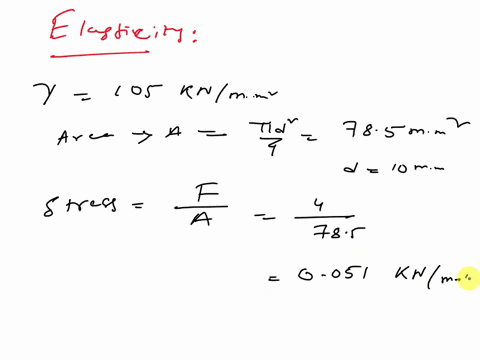 Elasticity:
Y = 105 KN/m.m²
Area → A = πd²/4 = 78.5 m.m²
d = 10 m.m
Stress = F/A = 4/78.5
= 0.051 KN/m.m